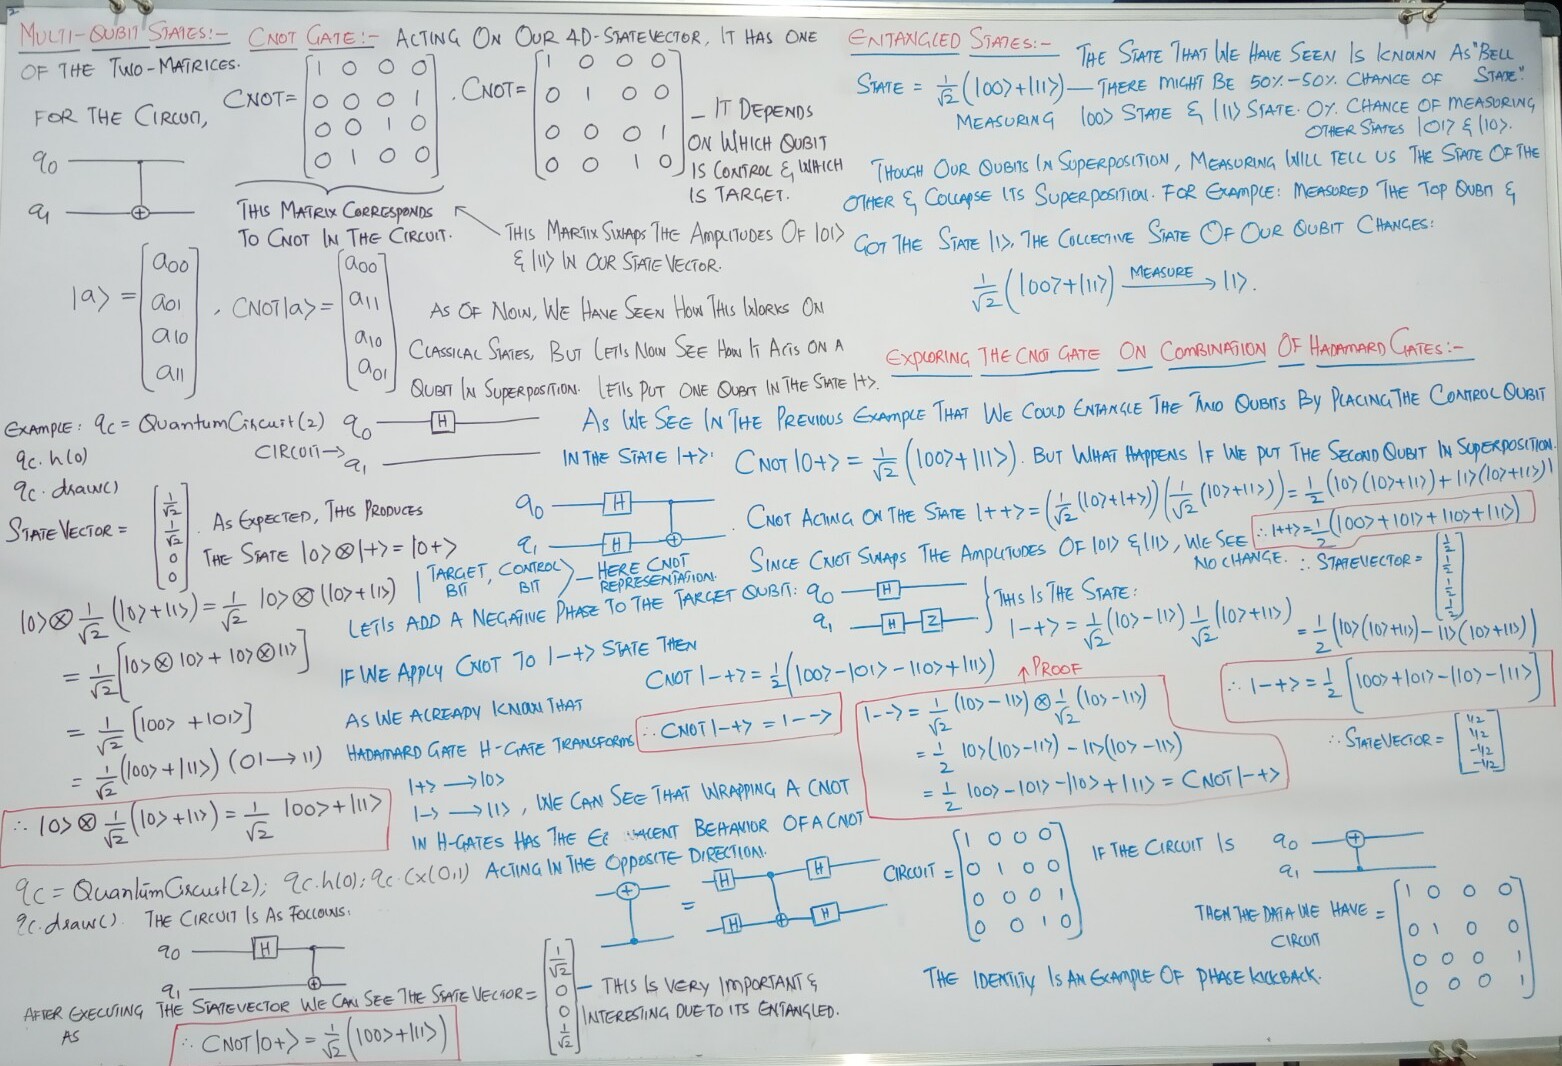 MULTI-QUBIT STATES:- CNOT GATE:- ACTING ON OUR 4D-STATEVECTOR, IT HAS ONE
OF THE TWO-MATRICES.
CNOT = [1 0 0 0
0 0 0 1
0 0 1 0
0 1 0 0]
. CNOT = [1 0 0 0
0 1 0 0
0 0 0 1
0 0 1 0]
- IT DEPENDS
ON WHICH QUBIT
IS CONTROL & WHICH
IS TARGET.
FOR THE CIRCUIT,
q0
q1
THIS MATRIX CORRESPONDS
TO CNOT IN THE CIRCUIT.
THIS MARTIX SWAPS THE AMPLITUDES OF |01>
& |11> IN OUR STATE VECTOR.
|a> = [a00
a01
a10
a11]
, CNOT|a> = [a00
a11
a10
a01]
AS OF NOW, WE HAVE SEEN HOW THIS WORKS ON
CLASSICAL STATES, BUT LET|S NOW SEE HOW IT ACTS ON A
QUBIT IN SUPERPOSITION. LET|S PUT ONE QUBIT IN THE STATE |+>.
EXAMPLE: qc = QuantumCircuit(2)
qc.h(0)
qc.draw()
CIRCUIT→
q0 H
q1
STATEVECTOR = [1/√2
1/√2
0
0]
. AS EXPECTED, THIS PRODUCES
THE STATE |0>⊗|+> = |0+>
|0>⊗ 1/√2 (|0>+|1>) = 1/√2 |0>⊗(|0>+|1>)
| TARGET BIT, CONTROL BIT > - HERE CNOT REPRESENTATION.
= 1/√2 [|0>⊗|0> + |0>⊗|1>]
= 1/√2 [|00> + |01>]
= 1/√2 (|00>+|11>) (01→11)
∴ |0>⊗ 1/√2 (|0>+|1>) = 1/√2 |00>+|11>
qc = QuantumCircuit(2); qc.h(0); qc.cx(0,1)
qc.draw(). THE CIRCUIT IS AS FOLLOWS:
q0 H
q1
AFTER EXECUTING THE STATEVECTOR WE CAN SEE THE STATE VECTOR =
AS
[1/√2
0
0
1/√2]
- THIS IS VERY IMPORTANT &
INTERESTING DUE TO ITS ENTANGLED.
∴ CNOT|0+> = 1/√2 (|00>+|11>)
ENTANGLED STATES:- THE STATE THAT WE HAVE SEEN IS KNOWN AS "BELL
STATE".
STATE = 1/√2 (|00>+|11>) — THERE MIGHT BE 50%-50% CHANCE OF
MEASURING |00> STATE & |11> STATE. 0% CHANCE OF MEASURING
OTHER STATES |01> & |10>.
THOUGH OUR QUBITS IN SUPERPOSITION, MEASURING WILL TELL US THE STATE OF THE
OTHER & COLLAPSE ITS SUPERPOSITION. FOR EXAMPLE: MEASURED THE TOP QUBIT &
GOT THE STATE |1>, THE COLLECTIVE STATE OF OUR QUBIT CHANGES:
1/√2 (|00>+|11>) MEASURE → |1>.
EXPLORING THE CNOT GATE ON COMBINATION OF HADAMARD GATES:-
AS WE SEE IN THE PREVIOUS EXAMPLE THAT WE COULD ENTANGLE THE TWO QUBITS BY PLACING THE CONTROL QUBIT
IN THE STATE |+>. CNOT|0+> = 1/√2 (|00>+|11>). BUT WHAT HAPPENS IF WE PUT THE SECOND QUBIT IN SUPERPOSITION.
q0 H
q1 H
. CNOT ACTING ON THE STATE |++> = (1/√2 (|0>+|+>)) (1/√2 (|0>+|1>)) = 1/2 (|0>(|0>+|1>) + |1>(|0>+|1>))
SINCE CNOT SWAPS THE AMPLITUDES OF |01> & |11>, WE SEE
NO CHANGE.
∴ |++> = 1/2 (|00>+|01>+|10>+|11>)
∴ STATEVECTOR = [1/2
1/2
1/2
1/2]
LET|S ADD A NEGATIVE PHASE TO THE TARGET QUBIT:
q0 H
q1 H Z
THIS IS THE STATE:
|-+> = 1/√2 (|0>-|1>) 1/√2 (|0>+|1>) = 1/2 (|0>(|0>+|1>)-|1>(|0>+|1>))
∴ |-+> = 1/2 [|00>+|01>-|10>-|11>]
∴ STATEVECTOR = [1/2
1/2
-1/2
-1/2]
IF WE APPLY CNOT TO |-+> STATE THEN
CNOT|-+> = 1/2 (|00>-|01>-|10>+|11>)
∴ CNOT|-+> = |-->
↑PROOF
|--> = 1/√2 (|0>-|1>) ⊗ 1/√2 (|0>-|1>)
= 1/2 |0>(|0>-|1>) - |1>(|0>-|1>)
= 1/2 |00>-|01>-|10>+|11> = CNOT|-+>
AS WE ALREADY KNOW THAT
HADAMARD GATE H-GATE TRANSFORMS
|+> → |0>
|-> → |1>, WE CAN SEE THAT WRAPPING A CNOT
IN H-GATES HAS THE BEHAVIOR OF A CNOT
ACTING IN THE OPPOSITE DIRECTION.
= H H H H
CIRCUIT = [1 0 0 0
0 1 0 0
0 0 0 1
0 0 1 0]
IF THE CIRCUIT IS
q0
q1
THEN THE DATA WE HAVE =
CIRCUIT
[1 0 0 0
0 1 0 0
0 0 0 1
0 0 0 1]
THE IDENTITY IS AN EXAMPLE OF PHASE KICKBACK.